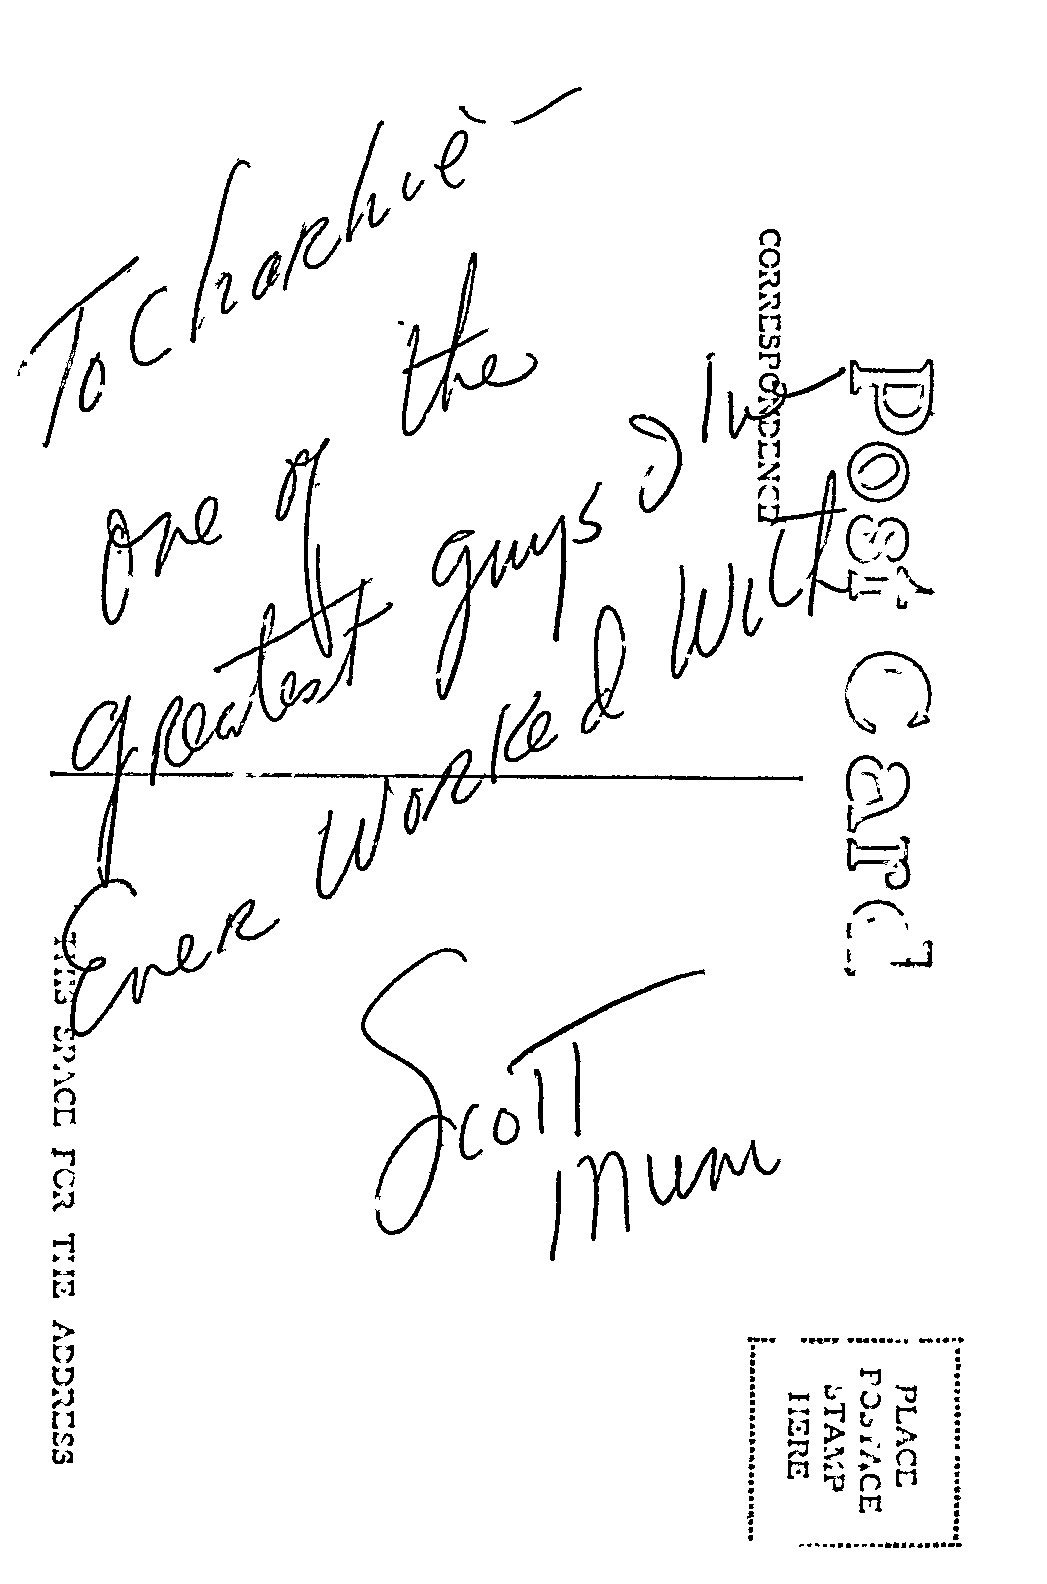 To Charlie -
one of the
greatest guys I've
Ever worked with
Scott
Muni
Post Card
CORRESPONDENCE
THIS SPACE FOR THE ADDRESS
PLACE
POSTAGE
STAMP
HERE